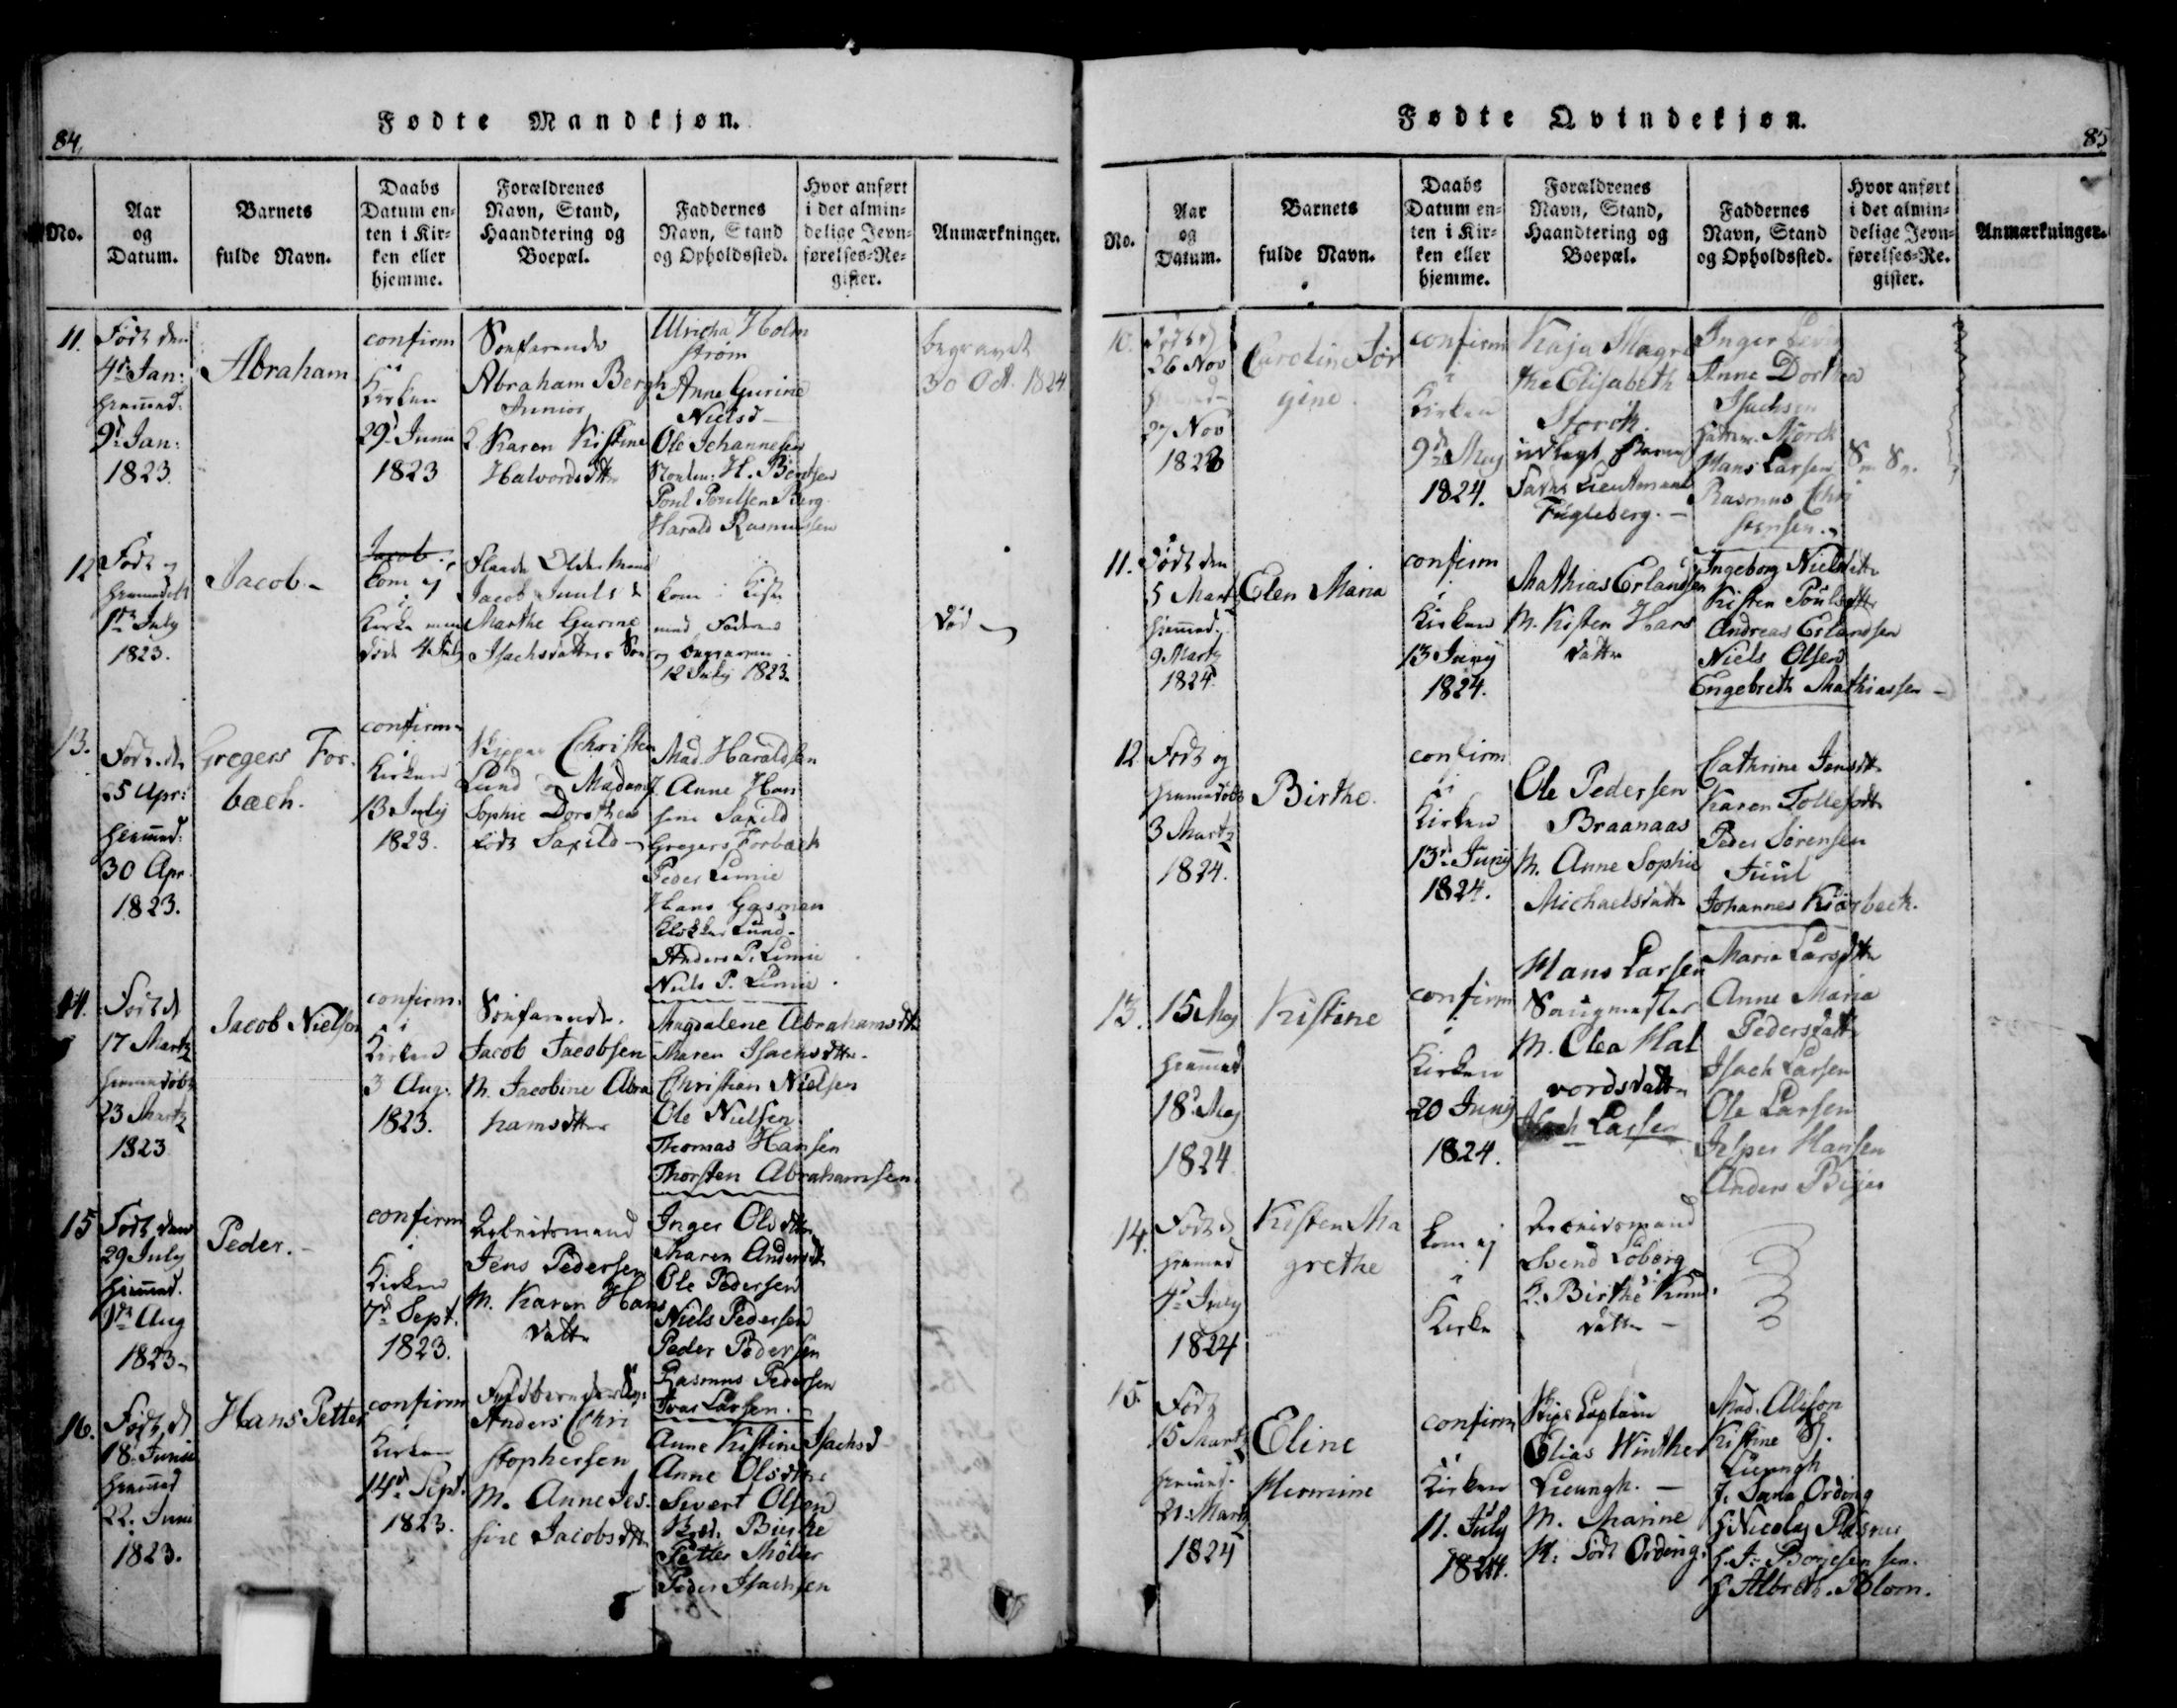 84.
Fødte Mandkjøn.
No.
Aar
og
Datum.
Barnets
fulde Navn.
Daabs
Datum en-
ten i Kir-
ken eller
hjemme.
Forældrenes
Navn, Stand,
Haandtering og
Boepæl.
Faddernes
Navn, Stand
og Opholdssted.
Hvor anført
i det almin-
delige Jevn-
førelses-Re-
gister.
Anmærkninger.
11.
Født den
4de Jan:
hiemmed.
9d Jan:
1823.
Abraham
confirm
i
Kirken
29d Junii
1823
Søefarende
Abraham Bergh
Junior
K Karen Kistine
Halvordsdtr
Ulricha Holm
strøm
Anne Gurine
Nielsd
Ole Johannesen
H. Berntsen
Poul Poulsen Berg
Harald Rasmussen
begravet
30 Oct. 1824
12
Født og
hiemmedøbt
1de July
1823.
Jacob
Jacob
kom ej
i
Kirke men
døde 4 July
Oldermand
Jacob Juuls &
Marthe Gurine
Isachsdatters Søn
kom i Kiste
med Faderens
og begraven
12 July 1823.
død
13.
Født de
25 Apr:
hiemmed:
30 Apr
1823.
Gregers For-
bech.
confirm
i
Kirken
13 July
1823.
Skipper Christen
Lund og Madam
Sophie Dorothea
født Saxild
Mad. Haraldsen
J. Anne Han
sine Saxild
Gregers Forbech
Peder Limie
Hans Gasman
Klokker Lund
Anders P. Limie
Niels P. Limie
14.
Født d
17 Martz
hiemmedøbt
23 Martz
1823
Jacob Nielson
confirm.
i
Kirken
3 Aug:
1823.
Søefarende.
Jacob Jacobsen
M. Jacobine Abra
hamsdtr
Magdalene Abrahamsdtr
Maren Isachsdtr
Christian Nielsen
Ole Nielsen
Thomas Hansen
Thorsten Abrahamsen.
15
Født den
29 July
hiemmed.
9de Aug
1823
Peder.
confirm
i
Kirken
7d Sept.
1823.
Arbeidsmand
Jens Pedersen
M. Karen Hans
datter
Inger Olsdtr
Maren Andersdtr
Ole Pedersen
Niels Pedersen
Peder Pedersen
Rasmus Pedersen
Ivar Larsen.
16.
Født d
18 Junii
hiemmed
22. Juni
1823.
Hans Petter
confirm
i
Kirken
14d Sept.
1823.
Anders Chri
stophersen
M. Anne Jes-
sine Jacobsdtr
Anne Kistine Isachsd
Anne Olsdtr
Sivert Olsen
Petter Møller
Peder Isachsen
85
Fødte Qvindekjøn.
No.
Aar
og
Datum.
Barnets
fulde Navn.
Daabs
Datum en-
ten i Kir-
ken eller
hjemme.
Forældrenes
Navn, Stand,
Haandtering og
Boepæl.
Faddernes
Navn, Stand
og Opholdssted.
Hvor anført
i det almin-
delige Jevn-
førelses-Re.
gister.
Anmærkninger.
10.
26 Nov
27 Nov
1823
Caroline Jør
gine.
confirm
i
Kirken
9de May
1824.
Kaja Magre
the Elisabeth
Storck.
udlagt Barne
Fader Lieutenant
Fugleberg.
Inger
Anne Dorthea
Isachsen
Hans Larsen
Rasmus Chri
stensen.
11.
Født den
5 Martz
hiemmed.
9 Martz
1824.
Elen Maria
confirm
i
Kirken
13 Junij
1824.
Mathias Erlandsen
M. Kisten Hans
datter
Ingeborg Nielsdtr
Kisten Poulsdtr
Andreas Erlandsen
Niels Olsen
Engebreth Mathiassen
12
Født og
hiemmedøbt
3 Martz
1824.
Birthe.
confirm
i
Kirken
13d Junij
1824.
Ole Pedersen
Braanaas
M. Anne Sophie
Michaelsdatter
Cathrine Jensdtr
Karen Tollefsdtr
Peder Sørensen
Juul
Johannes Kiærbech.
13.
15 May
hiemmed
18d May
1824
Kistine
confirm
i
Kirken
20 Junij
1824.
Hans Larsen
Saugmester
M. Olea Hal
vordsdatter
Isach Larsen
Maria Larsdtr
Anne Maria
Pedersdatter
Isach Larsen
Ole Larsen
Jesper Hansen
Anders
14.
Født d
hiemmed
4d July
1824
Kisten Ma
grethe
kom ej
i
Kirke
Arbeidsmand
Svend Loberg
K. Birthe Knuds
datter
15.
Født
15 Martz
hiemmed.
21. Martz
1824
Eline
Hermine
confirm
i
Kirken
11. July
1824.
Skips Captain
Elias Winther
Lieungh.
M. Marine
K. født Ording.
Mad. Alison
Kistine
Lieungh
J. Sara Ording
H Nicolaj Plesner
H. J. Borgesen sen.
H Albreth. Blom.